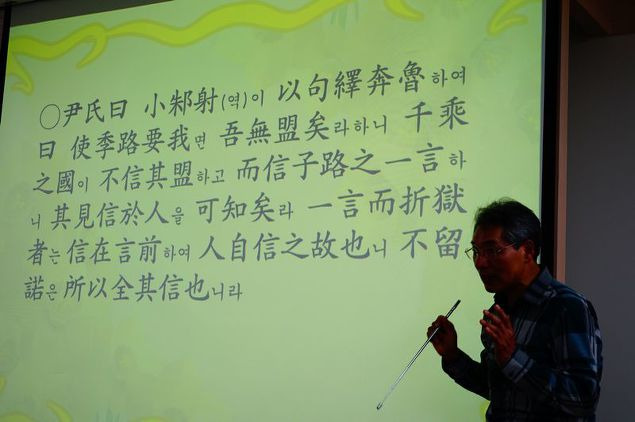 ○尹氏曰 小邾射(역)이 以句繹奔魯하여
曰 使季路要我면 吾無盟矣라하니 千乘
之國이 不信其盟하고 而信子路之一言하
니 其見信於人을 可知矣라 一言而折獄
者는 信在言前하여 人自信之故也니 不留
諾은 所以全其信也니라